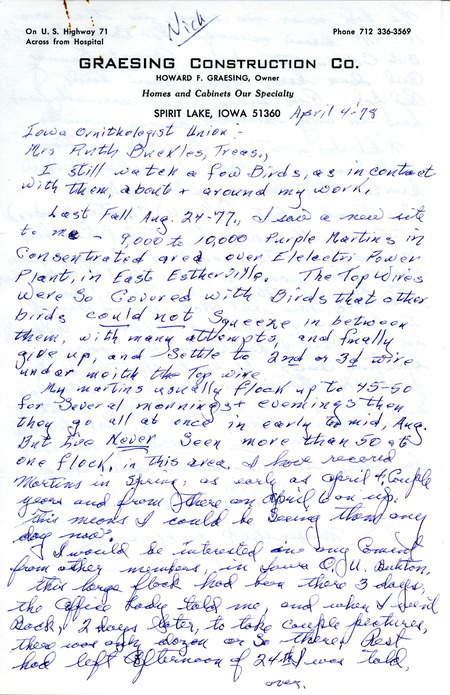 Nick
On U. S. Highway 71
Across from Hospital
Phone 712 336-3569
GRAESING CONSTRUCTION CO.
HOWARD F. GRAESING, Owner
Homes and Cabinets Our Specialty
SPIRIT LAKE, IOWA 51360 April 4-'78
Iowa Ornithologist Union:-
Mrs Ruth Buckles, Treas.,
I still watch a few Birds, as in contact
with them, about + around my work.
Last Fall Aug. 24-77, I saw a new site
to me - 9,000 to 10,000 Purple Martins in
Concentrated area over Elelectri Power
Plant, in East Estherville. The Top Wires
were so Covered with Birds that other
birds could not Squeeze in between
them, with many attempts, and finally
give up, and Settle to 2nd or 3d wire
under neith the Top wire
My martins usually flock up to 45-50
for Several mornings + evenings then
they go all at once in early to mid, Aug.
But I've Never Seen more than 50 at
one flock, in this area. I have record
Martins in Spring, as early as April 4, Couple
years and from there on April 6 on up.
This means I could be Seeing them any
day now.
I would be interested in any Comint
from other members, in Iowa O. U. Bulletin,
this large flock had been there 3 days,
the Office Lady told me, and when I went
Back, 2 days later, to take couple pictures,
there was only dozen or So there. Rest
had left afternoon of 24th I was told,
over.